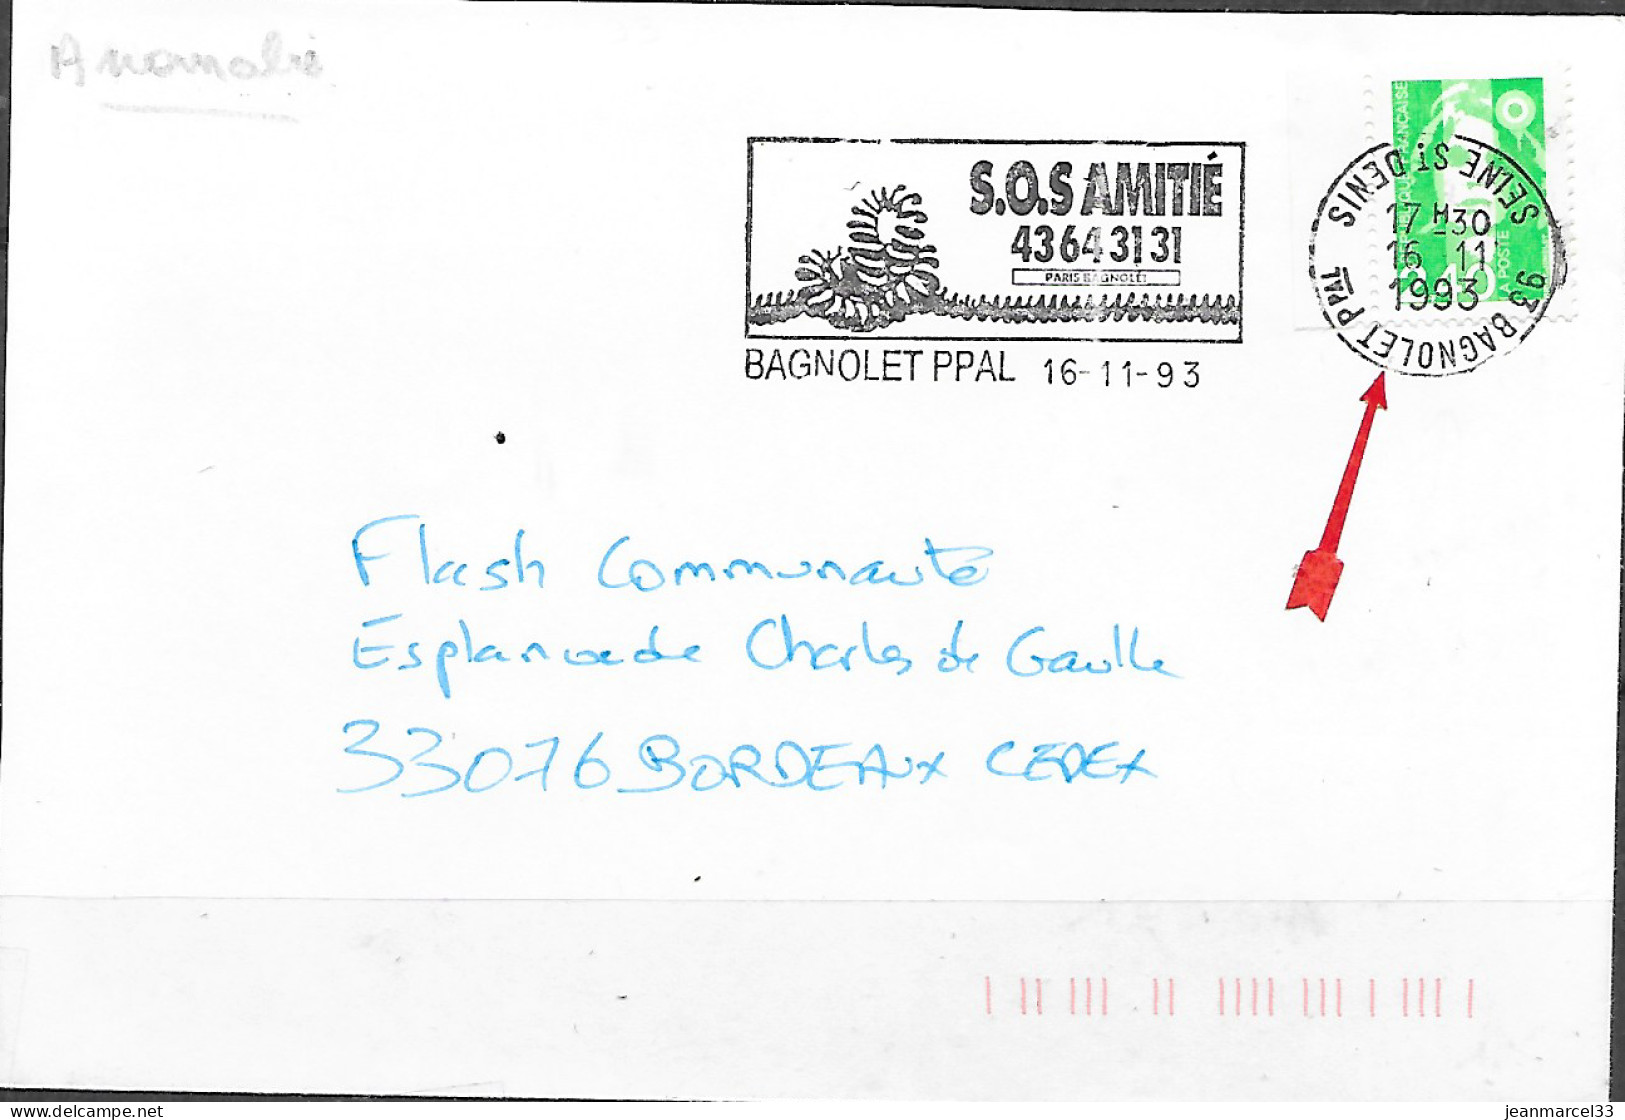 Anomalie
S.O.S AMITIÉ
43 64 31 31
PARIS BAGNOLET
BAGNOLET PPAL 16-11-93
RÉPUBLIQUE FRANÇAISE
LA POSTE
SEINE ST DENIS
17 H30
16 11
1993
93 BAGNOLET PPAL
Flash Communauté
Esplanade Charles de Gaulle
33076 BORDEAUX CEDEX
delcampe.net
jeanmarcel33